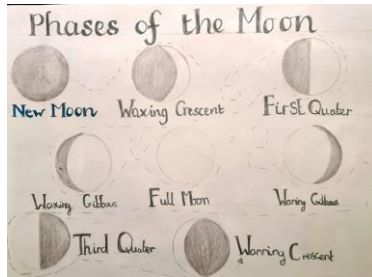 Phases of the Moon
New Moon Waxing Crescent First Quater
Waxing Gibbous Full Moon Waning Gibbous
Third Quater Warning Crescent